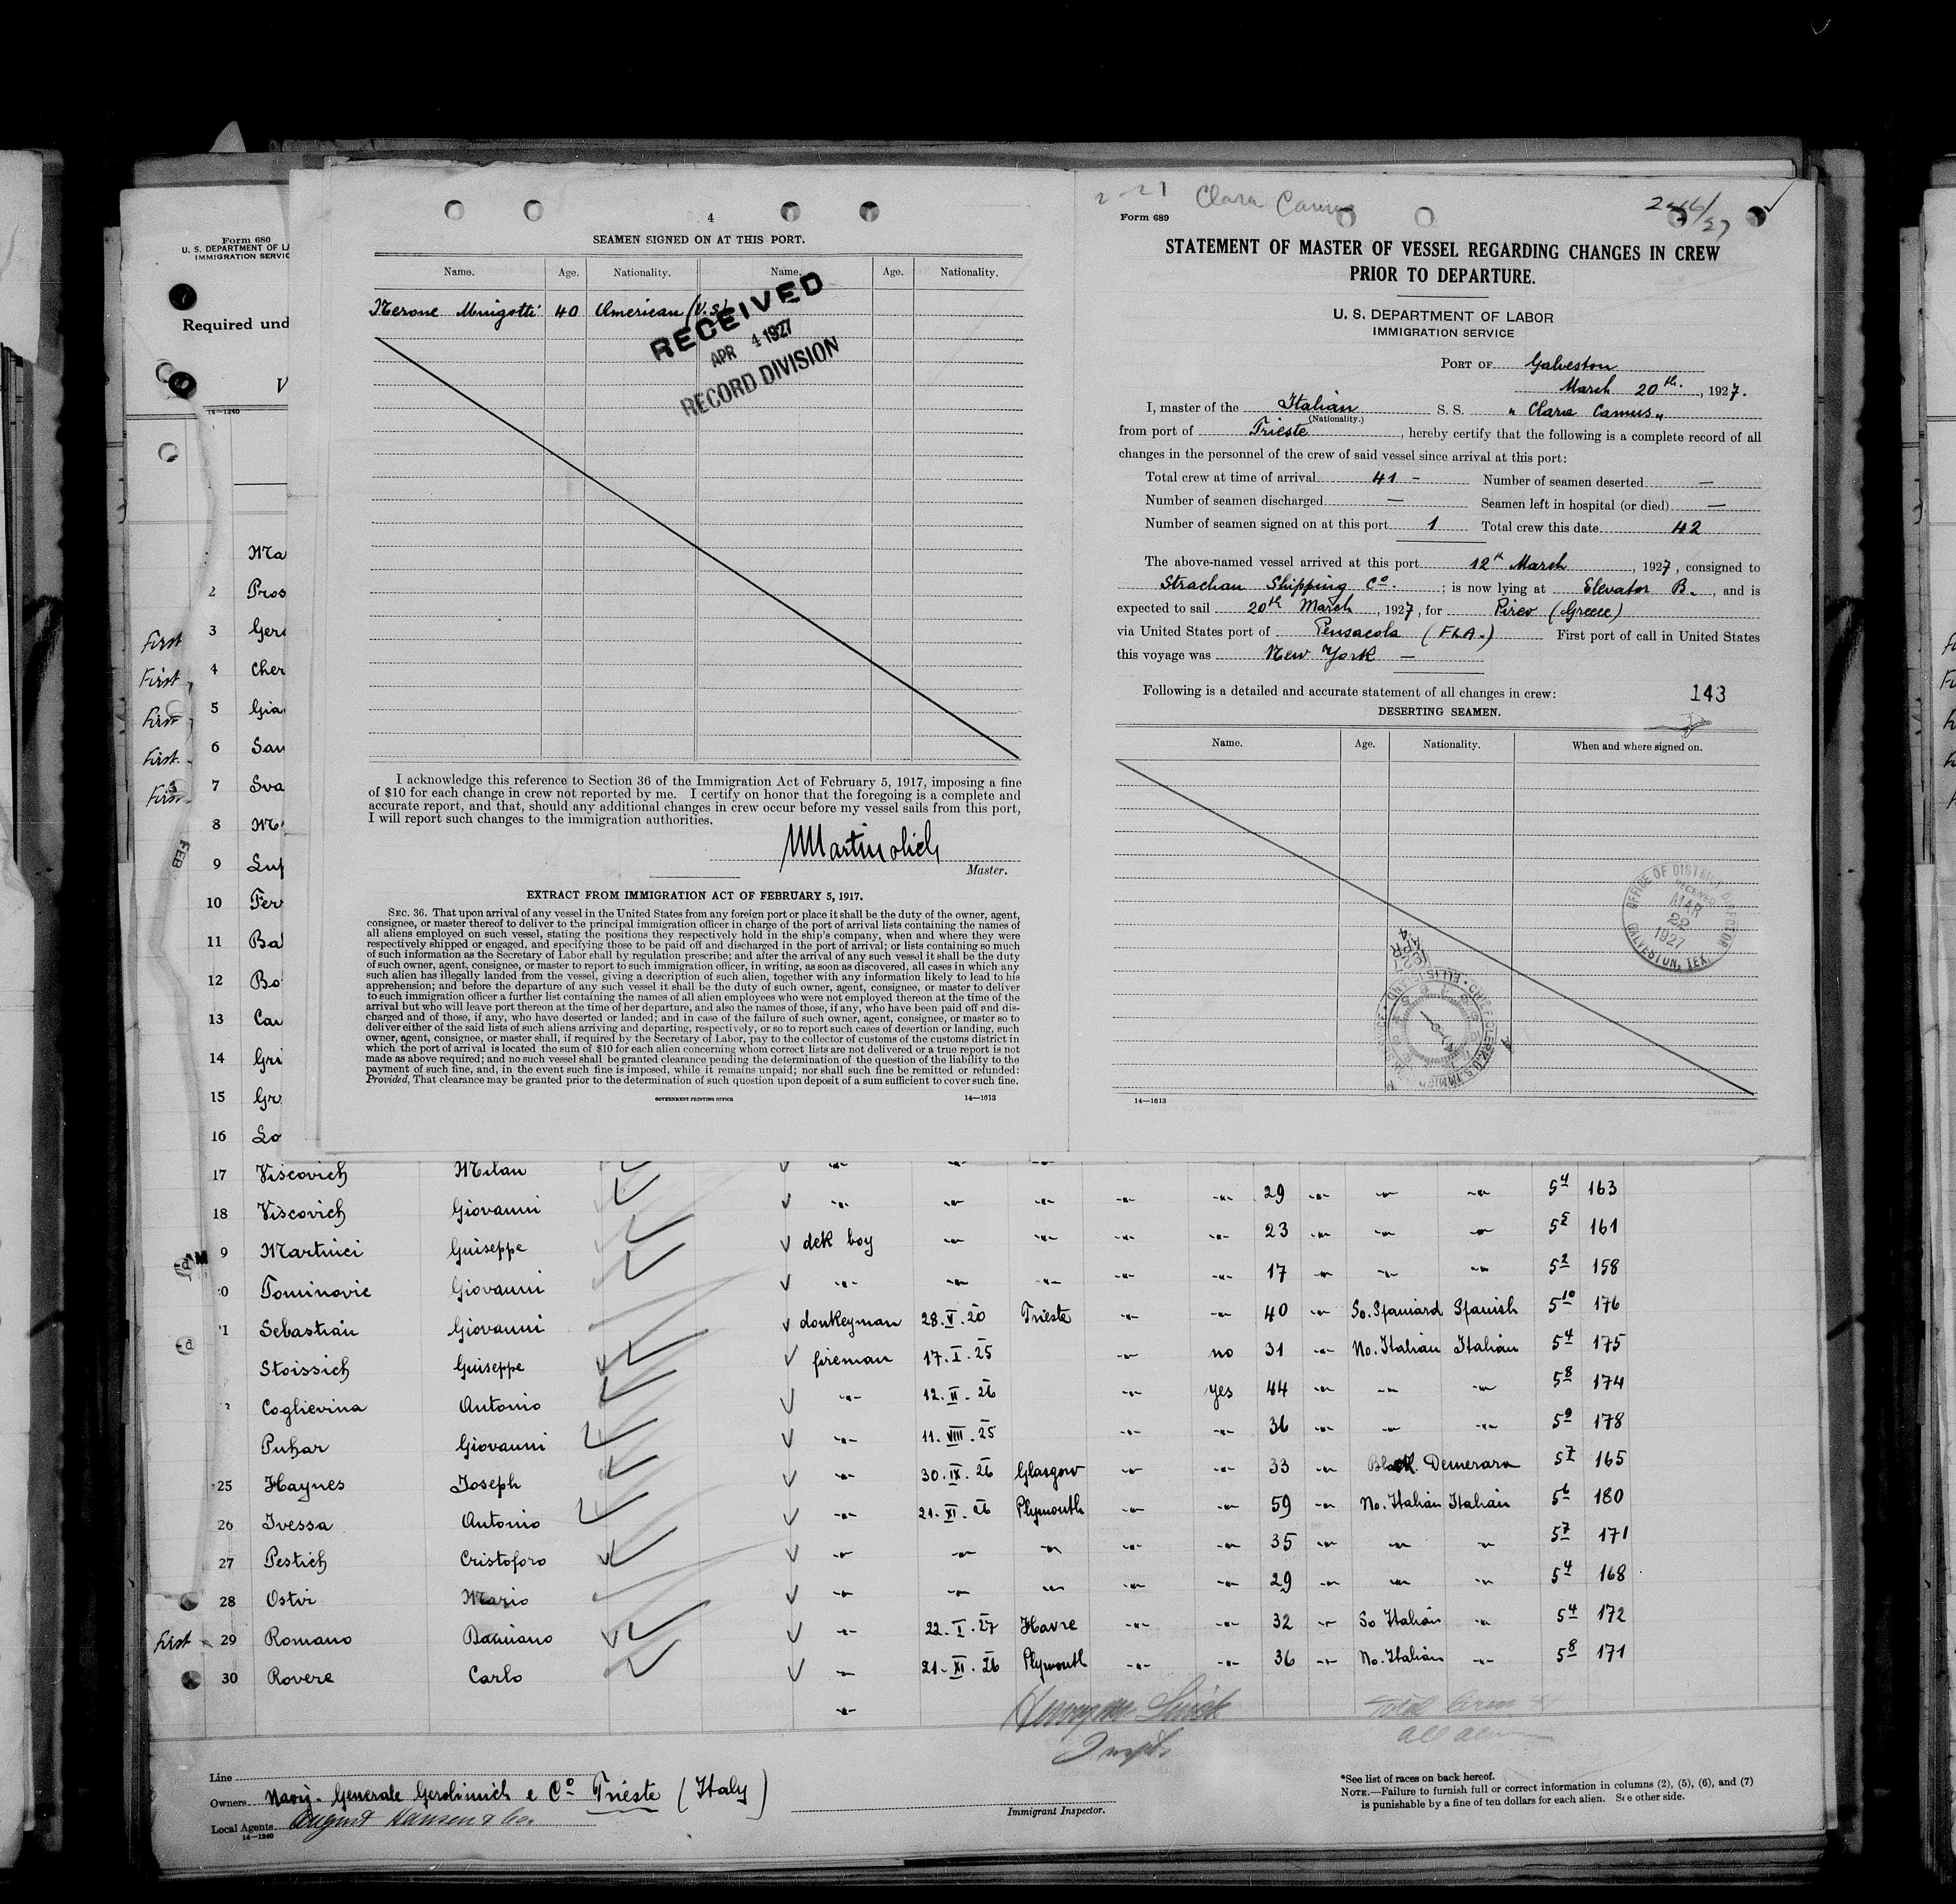 4
SEAMEN SIGNED ON AT THIS PORT.
Name. Age. Nationality. Name. Age. Nationality.
Nerone Minigotti 40 American (U.S.)
RECEIVED
APR 4 1927
RECORD DIVISION
I acknowledge this reference to Section 36 of the Immigration Act of February 5, 1917, imposing a fine
of $10 for each change in crew not reported by me. I certify on honor that the foregoing is a complete and
accurate report, and that, should any additional changes in crew occur before my vessel sails from this port,
I will report such changes to the immigration authorities.
Martinolich
Master.
EXTRACT FROM IMMIGRATION ACT OF FEBRUARY 5, 1917.
SEC. 36. That upon arrival of any vessel in the United States from any foreign port or place it shall be the duty of the owner, agent,
consignee, or master thereof to deliver to the principal immigration officer in charge of the port of arrival lists containing the names of
all aliens employed on such vessel, stating the positions they respectively hold in the ship's company, when and where they were
respectively shipped or engaged, and specifying those to be paid off and discharged in the port of arrival; or lists containing so much
of such information as the Secretary of Labor shall by regulation prescribe; and after the arrival of any such vessel it shall be the duty
of such owner, agent, consignee, or master to report to such immigration officer, in writing, as soon as discovered, all cases in which any
such alien has illegally landed from the vessel, giving a description of such alien, together with any information likely to lead to his
apprehension; and before the departure of any such vessel it shall be the duty of such owner, agent, consignee, or master to deliver
to such immigration officer a further list containing the names of all alien employees who were not employed thereon at the time of the
arrival but who will leave port thereon at the time of her departure, and also the names of those, if any, who have been paid off and dis-
charged and of those, if any, who have deserted or landed; and in case of the failure of such owner, agent, consignee, or master so to
deliver either of the said lists of such aliens arriving and departing, respectively, or so to report such cases of desertion or landing, such
owner, agent, consignee, or master shall, if required by the Secretary of Labor, pay to the collector of customs of the customs district in
which the port of arrival is located the sum of $10 for each alien concerning whom correct lists are not delivered or a true report is not
made as above required; and no such vessel shall be granted clearance pending the determination of the question of the liability to the
payment of such fine, and, in the event such fine is imposed, while it remains unpaid; nor shall such fine be remitted or refunded:
Provided, That clearance may be granted prior to the determination of such question upon deposit of a sum sufficient to cover such fine.
GOVERNMENT PRINTING OFFICE 14—1613
Clara Camus
Form 689
STATEMENT OF MASTER OF VESSEL REGARDING CHANGES IN CREW
PRIOR TO DEPARTURE.
U. S. DEPARTMENT OF LABOR
IMMIGRATION SERVICE
PORT OF Galveston
March 20th., 1927.
I, master of the Italian S. S. "Clara Camus"
(Nationality.)
from port of Trieste, hereby certify that the following is a complete record of all
changes in the personnel of the crew of said vessel since arrival at this port:
Total crew at time of arrival 41 - Number of seamen deserted —
Number of seamen discharged — Seamen left in hospital (or died) —
Number of seamen signed on at this port 1 Total crew this date 42
The above-named vessel arrived at this port 12th March, 1927, consigned to
Strachan Shipping Co.; is now lying at Elevator B., and is
expected to sail 20th March, 1927, for Pireo (Greece)
via United States port of Pensacola (FLA.) First port of call in United States
this voyage was New York —
Following is a detailed and accurate statement of all changes in crew: 143
DESERTING SEAMEN.
Name. Age. Nationality. When and where signed on.
OFFICE OF DISTRICT DIRECTOR
RECEIVED
MAR
22
1927
GALVESTON, TEX.
APR 4
1927
14—1613
Form 680
U. S. DEPARTMENT OF LA
IMMIGRATION SERVIC
Required und
V
14—1240
Ma
2 Pros
First 3 Ger
First 4 Cher
First 5 Gia
First 6 San
First 7 Sva
8 M
9 Lup
FEB
10 Fer
11 Ba
12 Bo
13 Cau
14 Gri
15 Gr
16 Lo
17 Viscovich Milan -"- -"- -"-
18 Viscovich Giovanni -"- -"- -"- -"- -"- 29 -"- -"- -"- 5 4 163
9 Martinci Guiseppe dek boy -"- -"- -"- -"- 23 -"- -"- -"- 5 5 161
0 Tominovic Giovanni -"- -"- -"- -"- -"- 17 -"- -"- -"- 5 2 158
1 Sebastián Giovanni donkeyman 28.V.20 Trieste -"- -"- 40 -"- So. Spaniard Spanish 5 10 176
Stoissich Guiseppe fireman 17.I.25 -"- no 31 -"- No. Italian Italian 5 4 175
Coglievina Antonio -"- 12.II.26 -"- yes 44 -"- -"- -"- 5 8 174
Puhar Giovanni -"- 11.VIII.25 -"- -"- 36 -"- -"- -"- 5 9 178
25 Haynes Joseph -"- 30.IX.26 Glasgow -"- -"- 33 -"- Black Demerara 5 7 165
26 Ivessa Antonio -"- 21.XI.26 Plymouth -"- -"- 59 -"- No. Italian Italian 5 6 180
27 Pestich Cristoforo -"- -"- -"- -"- -"- 35 -"- -"- -"- 5 7 171
28 Ostir Mario -"- -"- -"- -"- -"- 29 -"- -"- -"- 5 4 168
First 29 Romano Damiano -"- 22.I.27 Havre -"- -"- 32 -"- So Italian -"- 5 4 172
30 Rovere Carlo -"- 21.XI.26 Plymouth -"- -"- 36 -"- No. Italian -"- 5 8 171
-"-
Line
Owners Navig. Generale Gerolimich e Co Trieste (Italy)
Local Agents August Hansen & Co.
14—1240
Immigrant Inspector.
*See list of races on back hereof.
NOTE.—Failure to furnish full or correct information in columns (2), (5), (6), and (7)
is punishable by a fine of ten dollars for each alien. See other side.